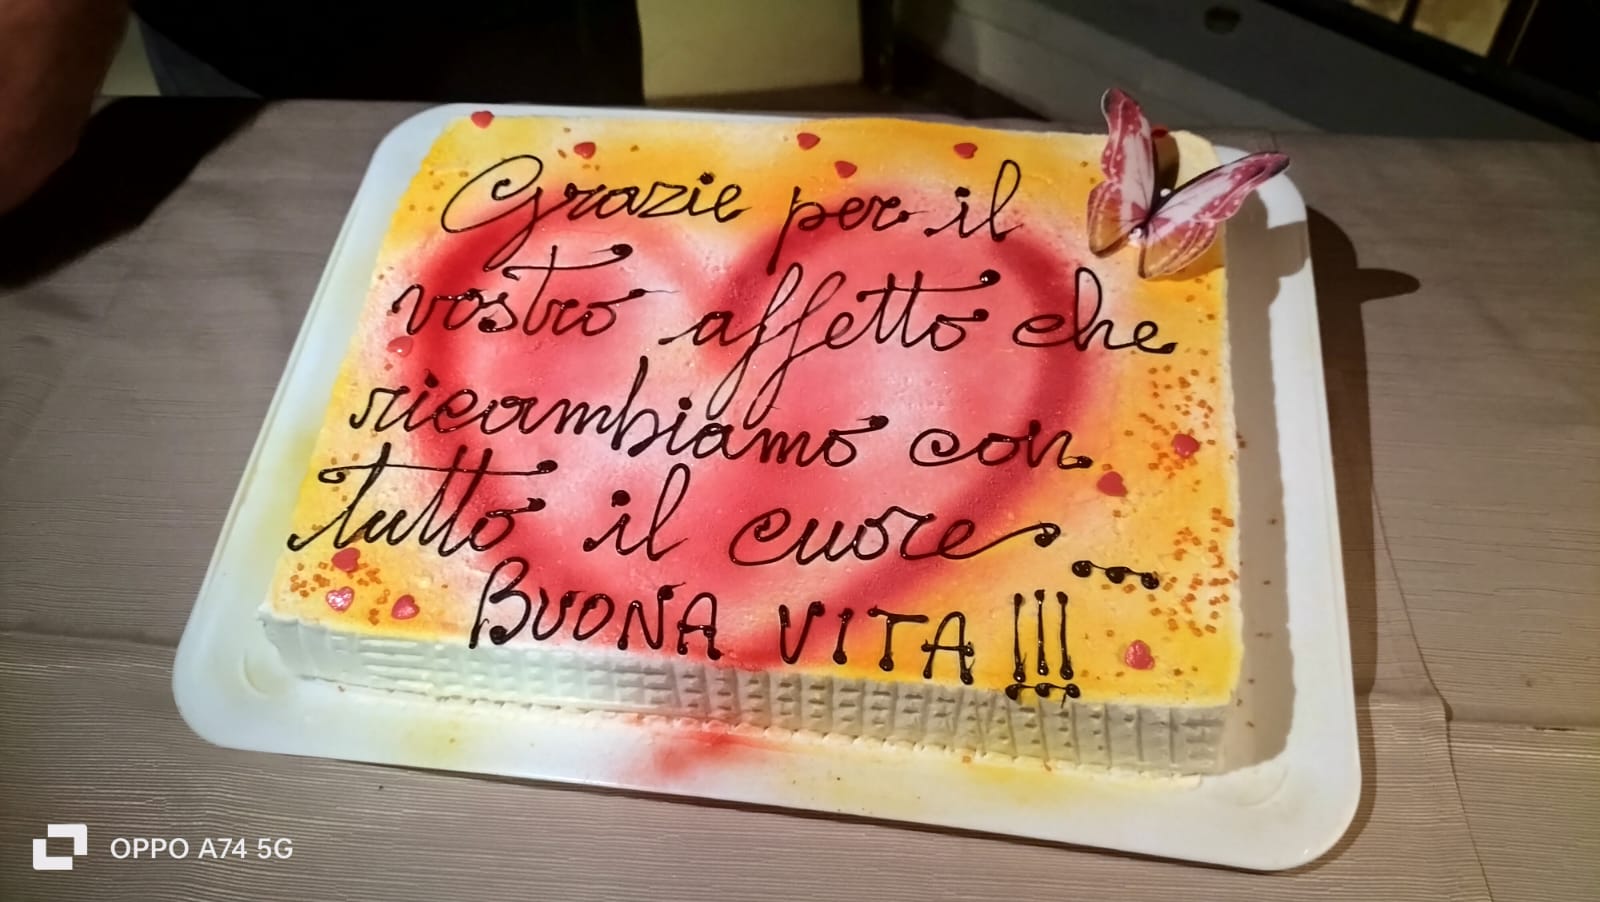 Grazie per il
vostro affetto che
ricambiamo con
tutto il cuore...
BUONA VITA!!!
OPPO A74 5G